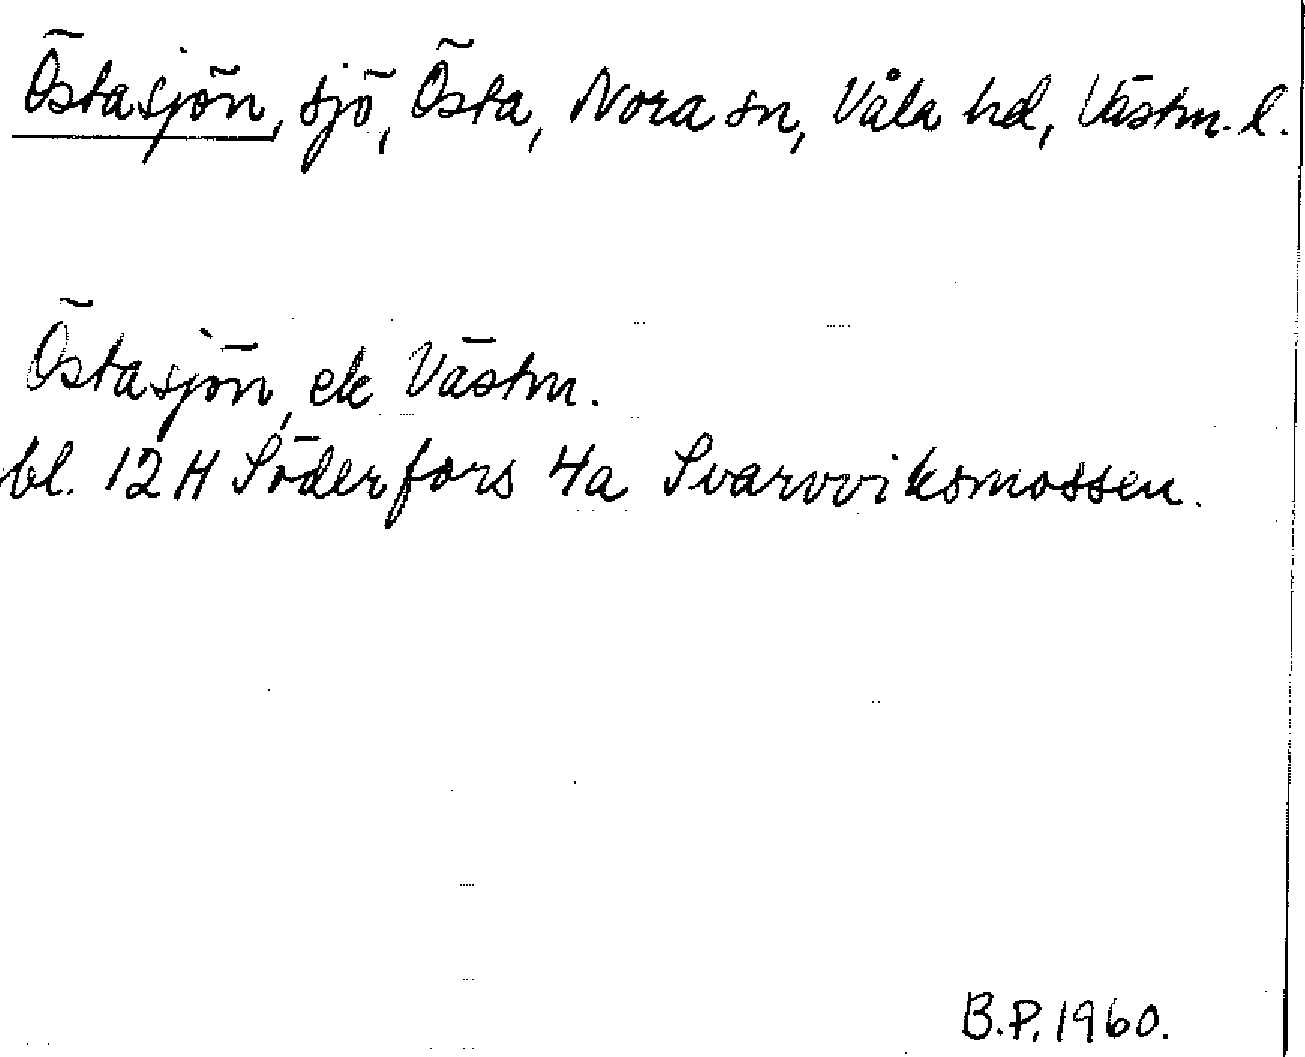 Östasjön, sjö, Östa, Nora sn, Våla hd, Västm. l.
Östasjön, ek Västm.
bl. 12 H Söderfors 4a Svarvviksmossen.
B.P. 1960.